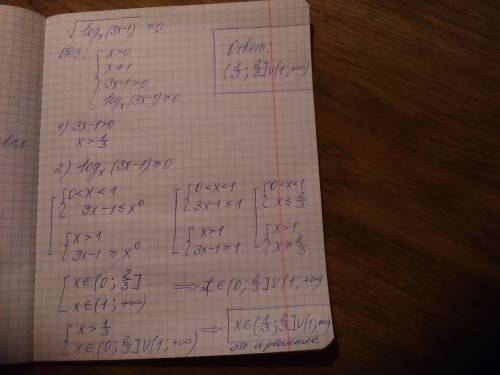 √log_x(3x-1) ≥0
ОДЗ: { x>0
x≠1
3x-1>0
log_x(3x-1)≥0
Ответ:
(1/3; 2/3]∪(1;+∞)
1) 3x-1>0
x>1/3
2) log_x(3x-1)≥0
[ { 0<x<1 [ { 0<x<1 [ { 0<x<1
3x-1≤x⁰ 3x-1≤1 x≤2/3
{ x>1 { x>1 { x>1
3x-1≥x⁰ 3x-1≥1 x≥2/3
[ x∈(0; 2/3] ⟹ x∈(0; 2/3]∪(1;+∞)
x∈(1;+∞)
{ x>1/3 ⟹ x∈(1/3; 2/3]∪(1;+∞)
x∈(0; 2/3]∪(1;+∞) это и решение